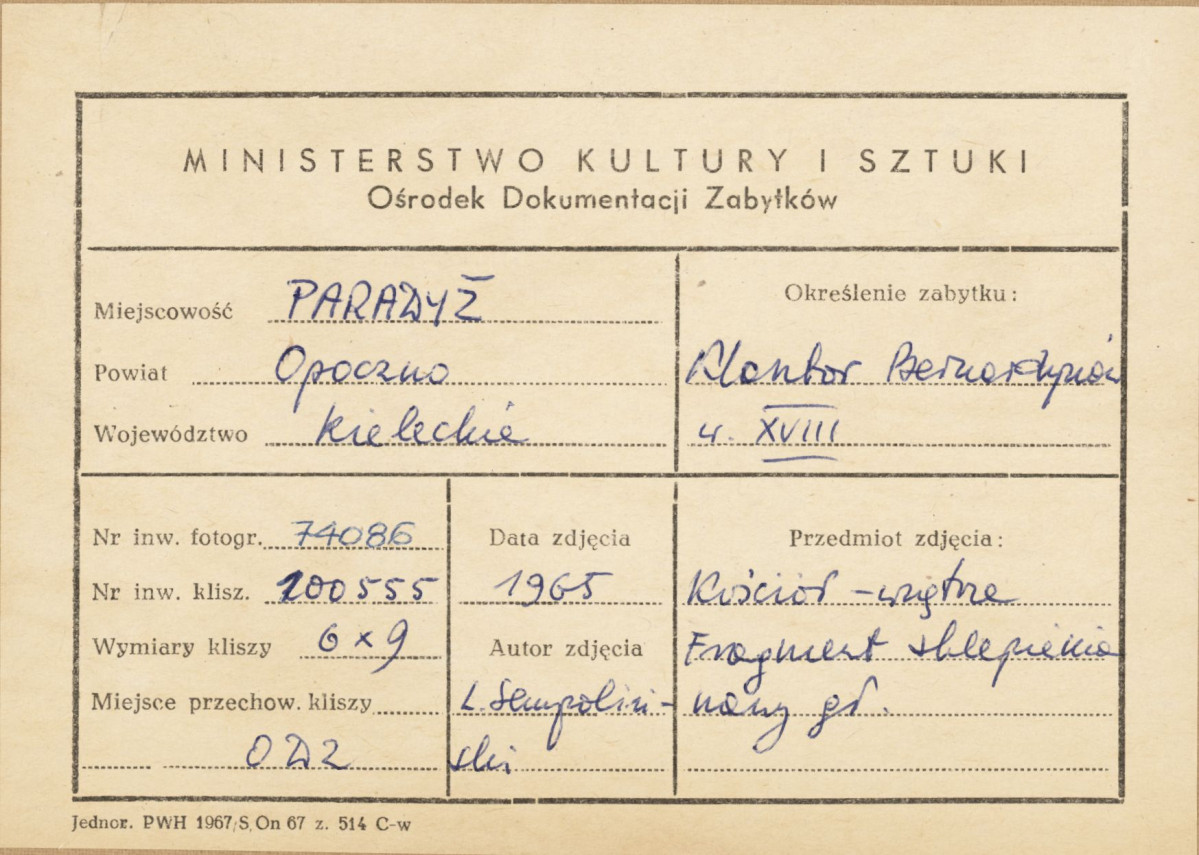 MINISTERSTWO KULTURY I SZTUKI
Ośrodek Dokumentacji Zabytków
Miejscowość PARADYŻ
Powiat Opoczno
Województwo kieleckie
Określenie zabytku:
Klasztor Bernardynów
w. XVIII
Nr inw. fotogr. 74086
Nr inw. klisz. 100555
Wymiary kliszy 6 x 9
Miejsce przechow. kliszy
ODZ
Data zdjęcia
1965
Autor zdjęcia
L. Sempoliń-
ski
Przedmiot zdjęcia:
Kościół - wnętrze
Fragment sklepienia
nawy gł.
Jednor. PWH 1967/S, On 67 z. 514 C-w